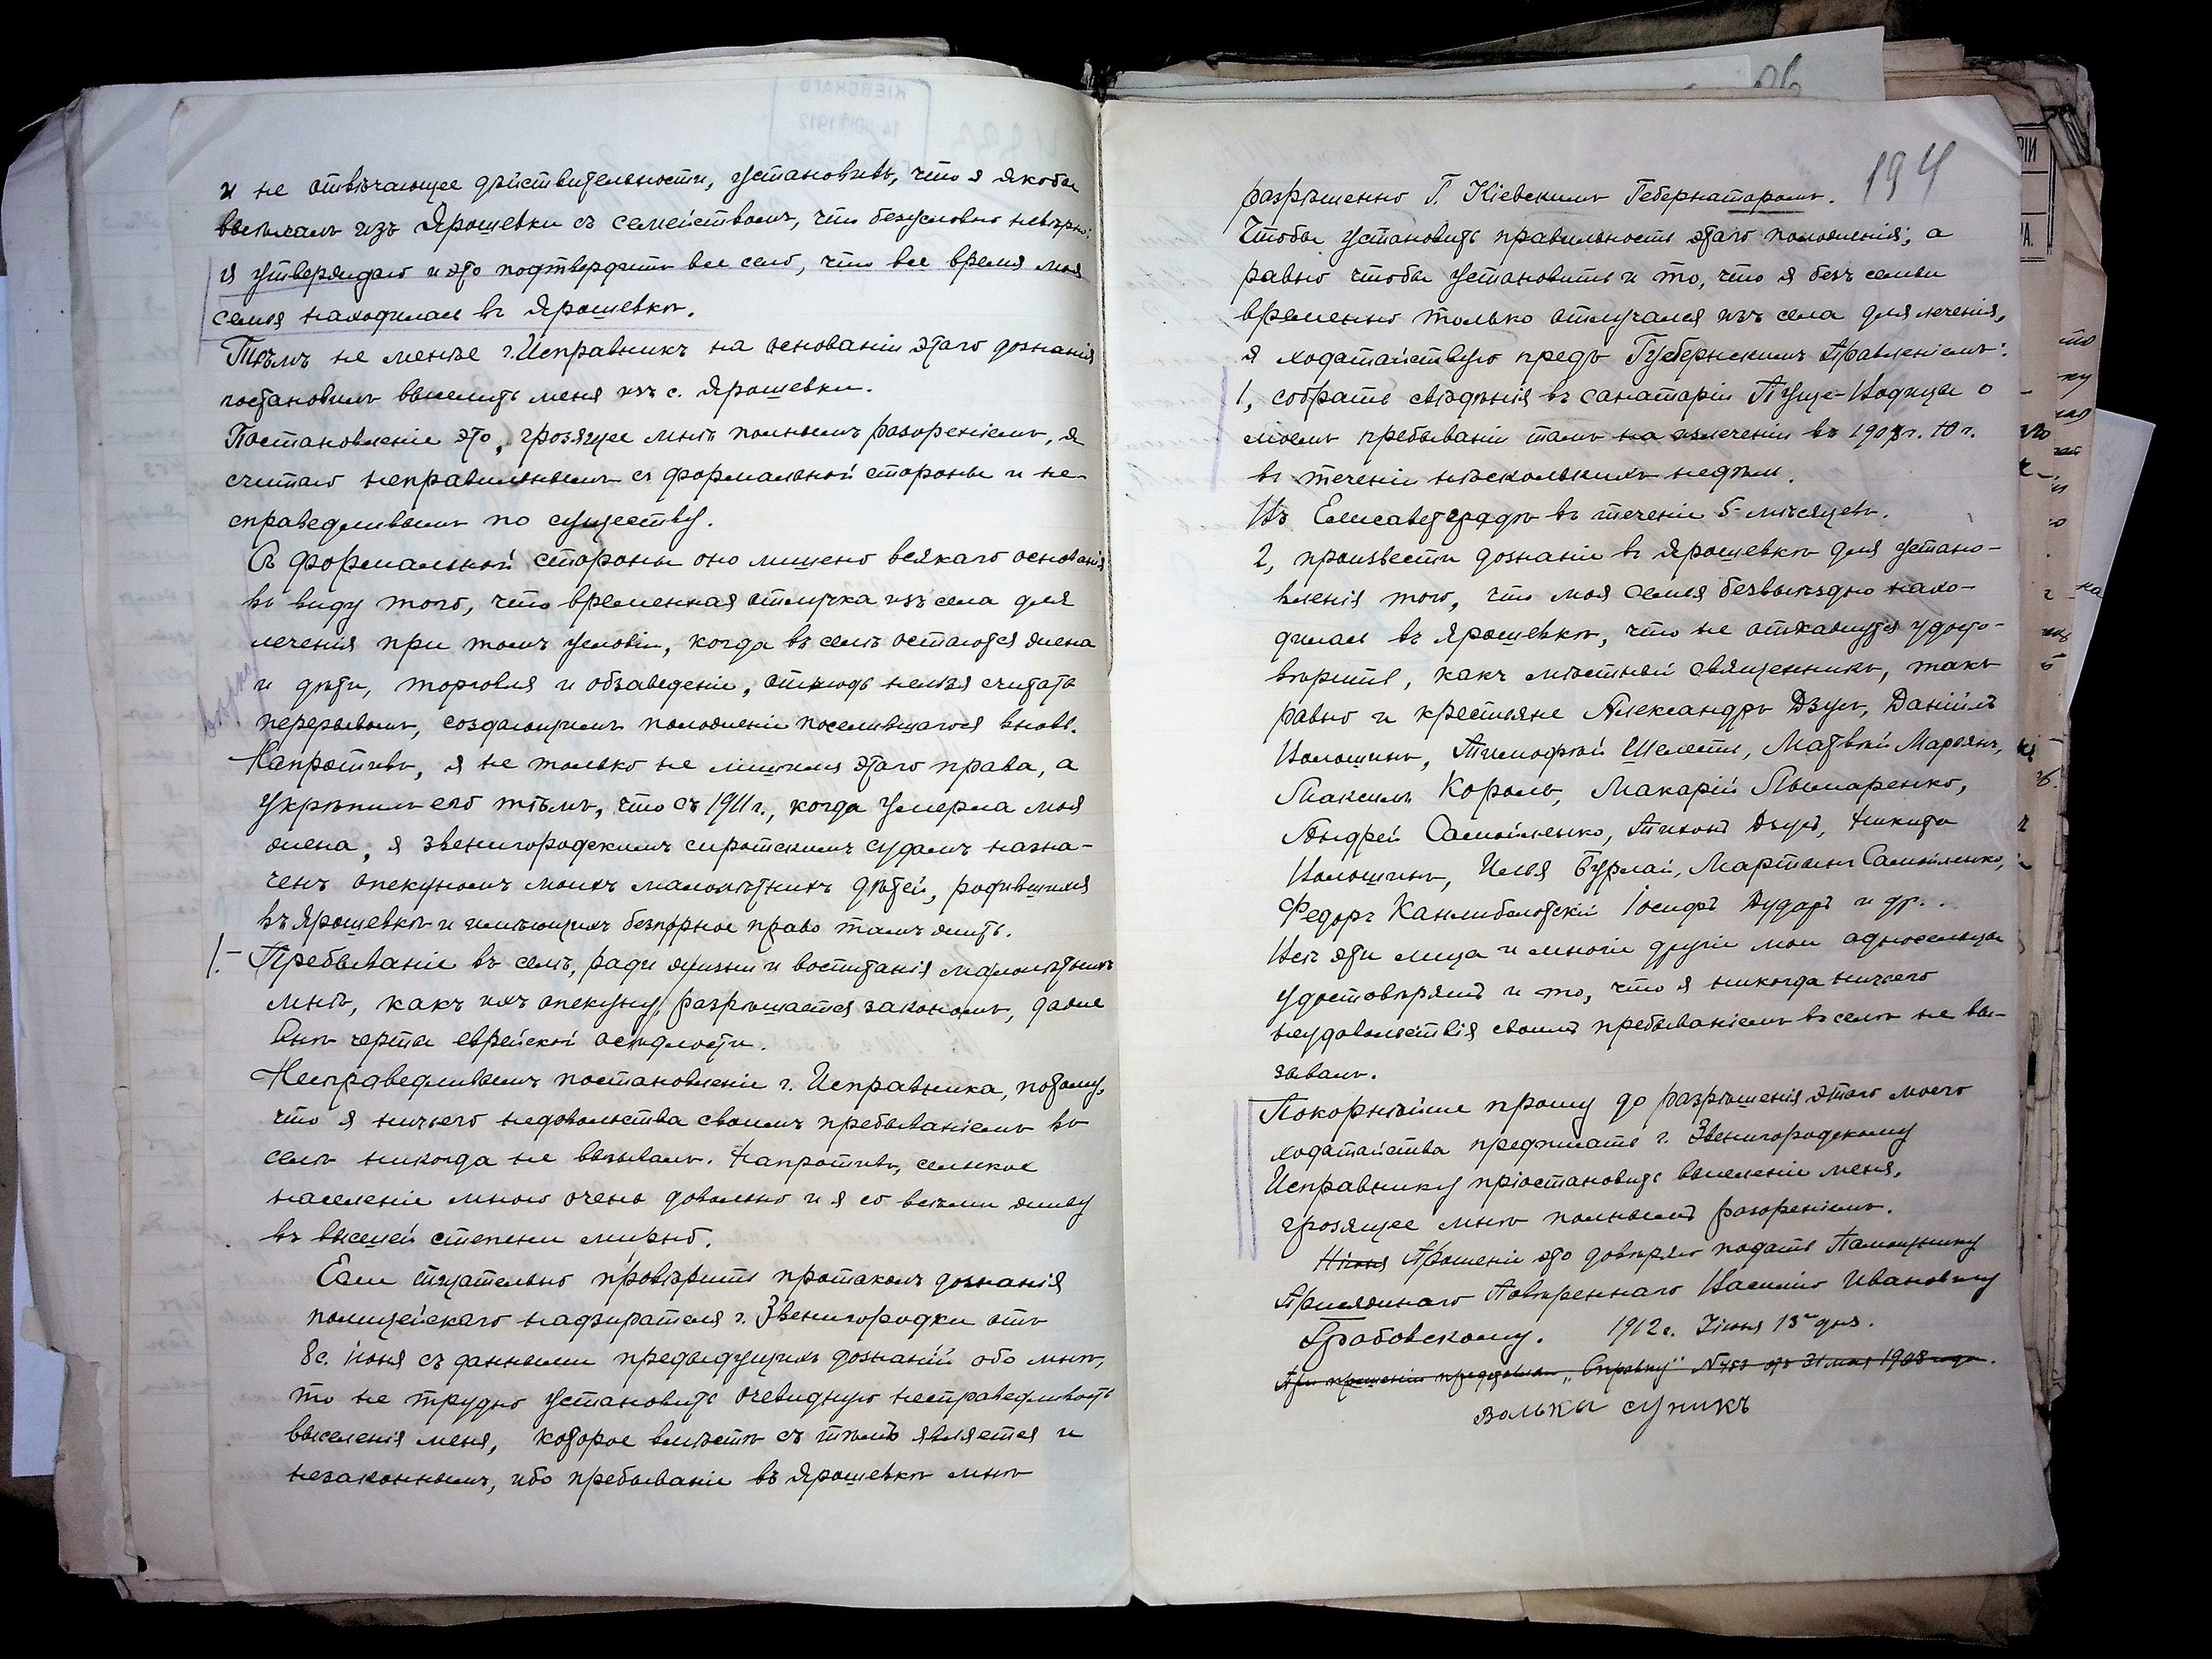 и не отвѣчающее дѣйствительности, установивъ, что я якобы
выѣхалъ изъ Ярошевки съ семействомъ, что безусловно невѣрно:
я утверждаю и это подтвердитъ все село, что все время моя
семья находилась въ Ярошевкѣ.
Тѣмъ не менѣе г. Исправникъ на основаніи этаго дознанія
постановилъ выселить меня изъ с. Ярошевки.
Постановленіе это, грозящее мнѣ полнымъ разореніемъ, я
считаю неправильнымъ съ формальной стороны и не-
справедливымъ по существу.
Съ формальной стороны оно лишено всякаго основанія
въ виду того, что временная отлучка изъ села для
лечения при томъ условіи, когда въ селѣ остаются жена
и дѣти, торговля и обзаведеніе, отнюдь нельзя считать
перерывомъ, создающимъ положеніе поселившагося вновь.
Напротивъ, я не только не лишился этаго права, а
укрѣпилъ его тѣмъ, что съ 1911 г., когда умерла моя
жена, я звенигородскимъ сиротскимъ судомъ назна-
ченъ опекуномъ моихъ малолѣтнихъ дѣтей, родившихся
въ Ярошевкѣ и имѣющихъ безспорное право тамъ жить.
1.- Пребываніе въ селѣ, ради жизни и воспитанія малолѣтнихъ
мнѣ, какъ ихъ опекуну, разрѣшается закономъ, даже
внѣ черты еврейской осѣдлости.
Несправедливымъ постановленіе г. Исправника, потому,
что я ничьего недовольства своимъ пребываніемъ въ
селѣ никогда не вызывалъ. Напротивъ, сельское
населеніе мною очень довольно и я со всѣми живу
въ высшей степени мирно.
Если тщательно провѣрить протоколъ дознанія
полицейскаго надзирателя г. Звенигородки отъ
8 с. іюня съ данными предыдущихъ дознаній обо мнѣ,
то не трудно установить очевидную несправедливость
выселенія меня, которое вмѣстѣ съ тѣмъ является и
незаконнымъ, ибо пребываніе въ Ярошевкѣ мнѣ
194
разрѣшенно Г. Кіевскимъ Губернаторомъ.
Чтобы установить правильность этаго положенія, а
равно чтобы установить и то, что я безъ семьи
временно только отлучался изъ села для леченія,
я ходатайствую предъ Губернскимъ Правленіемъ:
1, собрать свѣдѣнія въ санаторіи Пуще-Водицы о
моемъ пребываніи тамъ на излеченіи въ 1907 г.
въ теченіи нѣсколькихъ недѣль.
Въ Елисаветградѣ въ теченіи 5 мѣсяцевъ.
2, произвести дознаніе въ Ярошевкѣ для устано-
вленія того, что моя семья безвыѣздно нахо-
дилась въ Ярошевкѣ, что не откажутся удосто-
вѣрить, какъ мѣстный священникъ, такъ
равно и крестьяне Александръ Дзусъ, Даніилъ
Волошинъ, Тимофѣй Шелестъ, Матвѣй Марьянъ,
Максимъ Король, Макарій Пономаренко,
Андрей Самойленко, Тихонъ Дзусъ, Никита
Волошинъ, Илья Бурлай, Мартынъ Самойленко,
Федоръ Канлибалотскій Іосифъ Дударъ и др.
Всѣ эти лица и многіе другіе мои односельцы
удостовѣрятъ и то, что я никогда ничьего
неудовольствія своимъ пребываніемъ въ селѣ не вы-
зывалъ.
Покорнѣйше прошу до разрѣшенія этого моего
ходатайства предписать г. Звенигородскому
Исправнику пріостановить выселеніе меня,
грозящее мнѣ полнымъ разореніемъ.
Прошеніе это довѣряю подать Помощнику
Присяжнаго Повѣреннаго Василію Ивановичу
Грабовскому. 1912 г. Іюня 13 дня.
При прошеніи представляю „Справку" № 453 отъ 31 мая 1908 года.
Волько супикъ